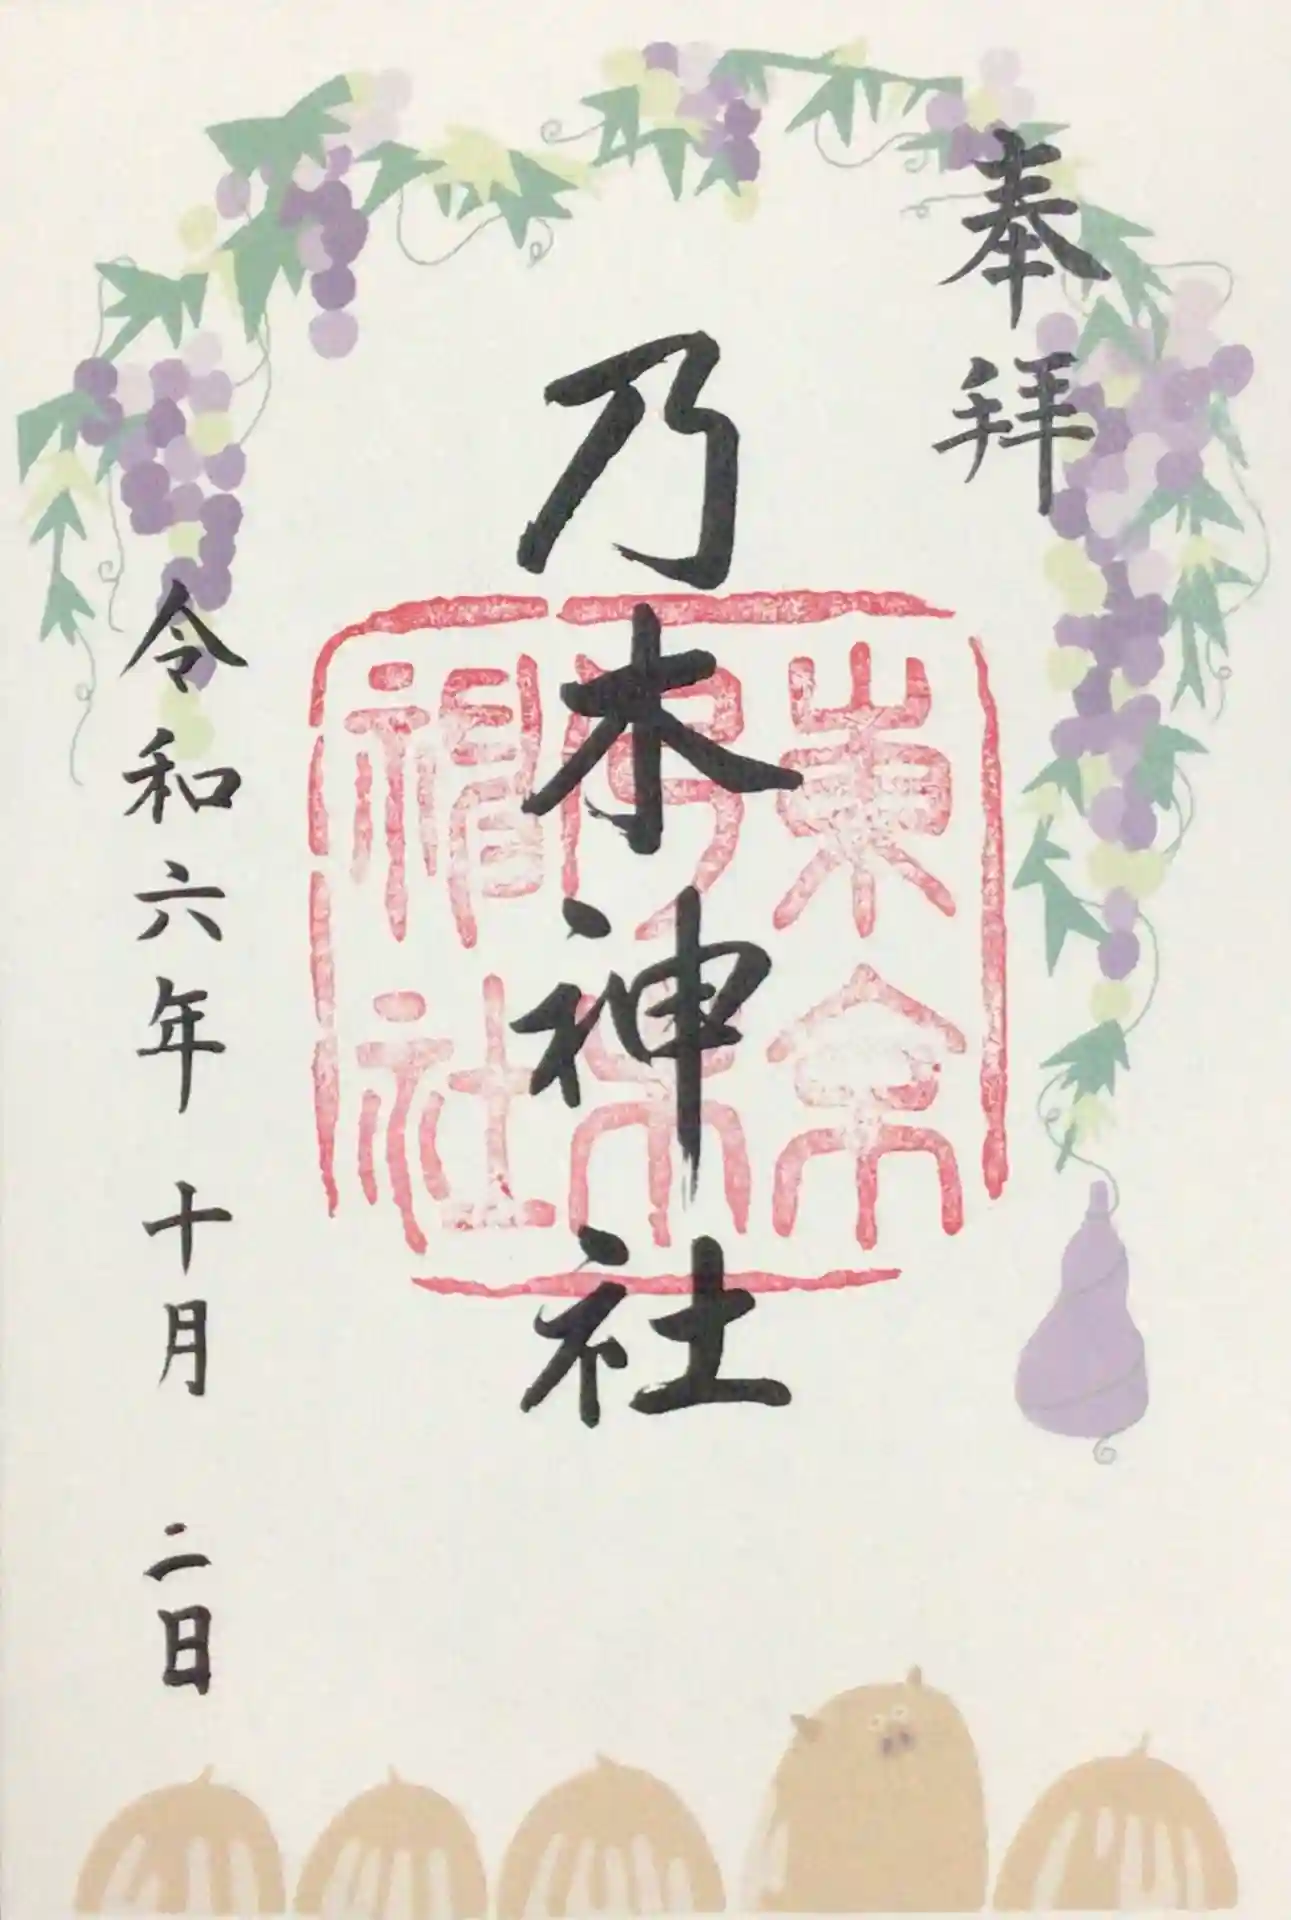 奉拝
乃木神社
東京
乃木
神社
令和六年十月二日